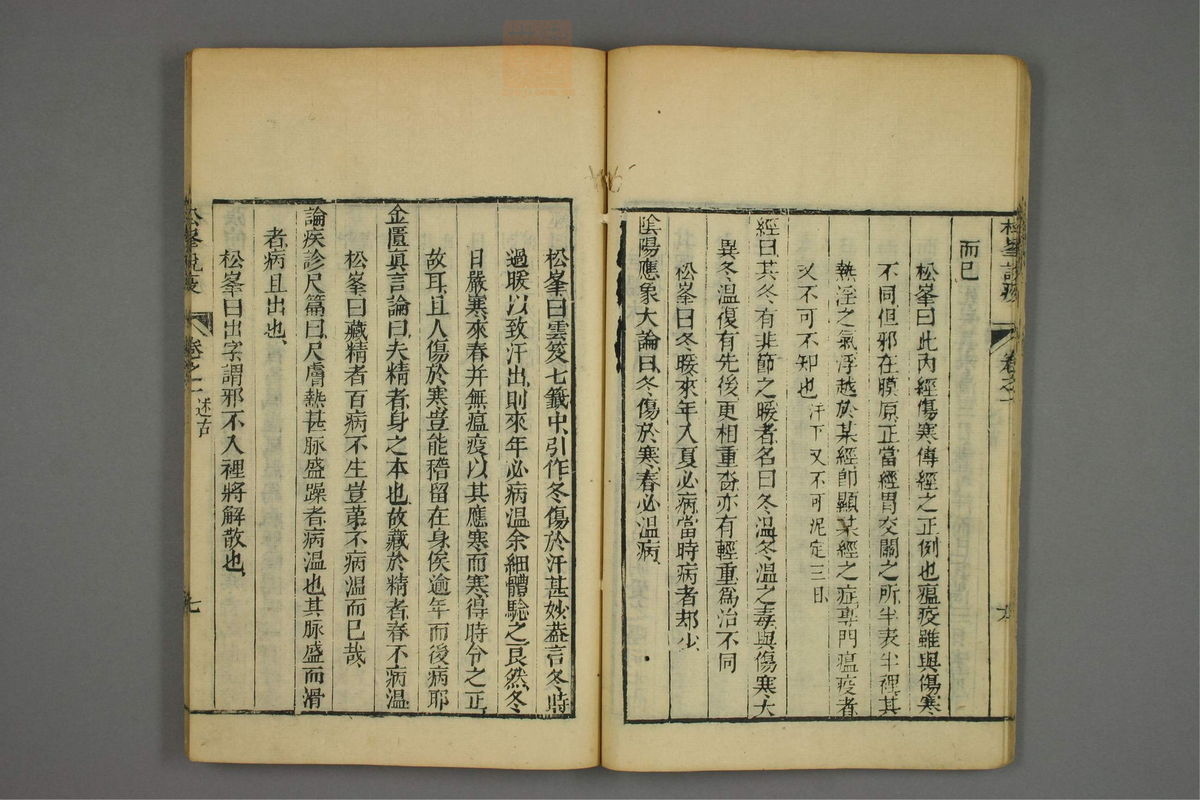 松峯說疫
卷之二
六
而已
松峯曰此內經傷寒傳經之正例也瘟疫雖與傷寒
不同但邪在膜原正當經胃交關之所半表半裡其
熱淫之氣浮越於某經卽顯某經之症專門瘟疫者
又不可不知也汗下又不可泥定三日
經曰其冬有非節之暖者名曰冬溫冬溫之毒與傷寒大
異冬溫復有先後更相重沓亦有輕重爲治不同
松峯曰冬暖來年入夏必病當時病者却少
陰陽應象大論曰冬傷於寒春必溫病
松峯曰雲笈七籤中引作冬傷於汗甚妙葢言冬時
過暖以致汗出則來年必病溫余細體驗之良然冬
日嚴寒來春并無瘟疫以其應寒而寒得時令之正
故耳且人傷於寒豈能稽留在身俟逾年而後病耶
金匱眞言論曰夫精者身之本也故藏於精者春不病溫
松峯曰藏精者百病不生豈第不病溫而已哉
論疾診尺篇曰尺膚熱甚脉盛躁者病溫也其脉盛而滑
者病且出也
松峯曰出字謂邪不入裡將解散也
松峯說疫
卷之二
述古
七